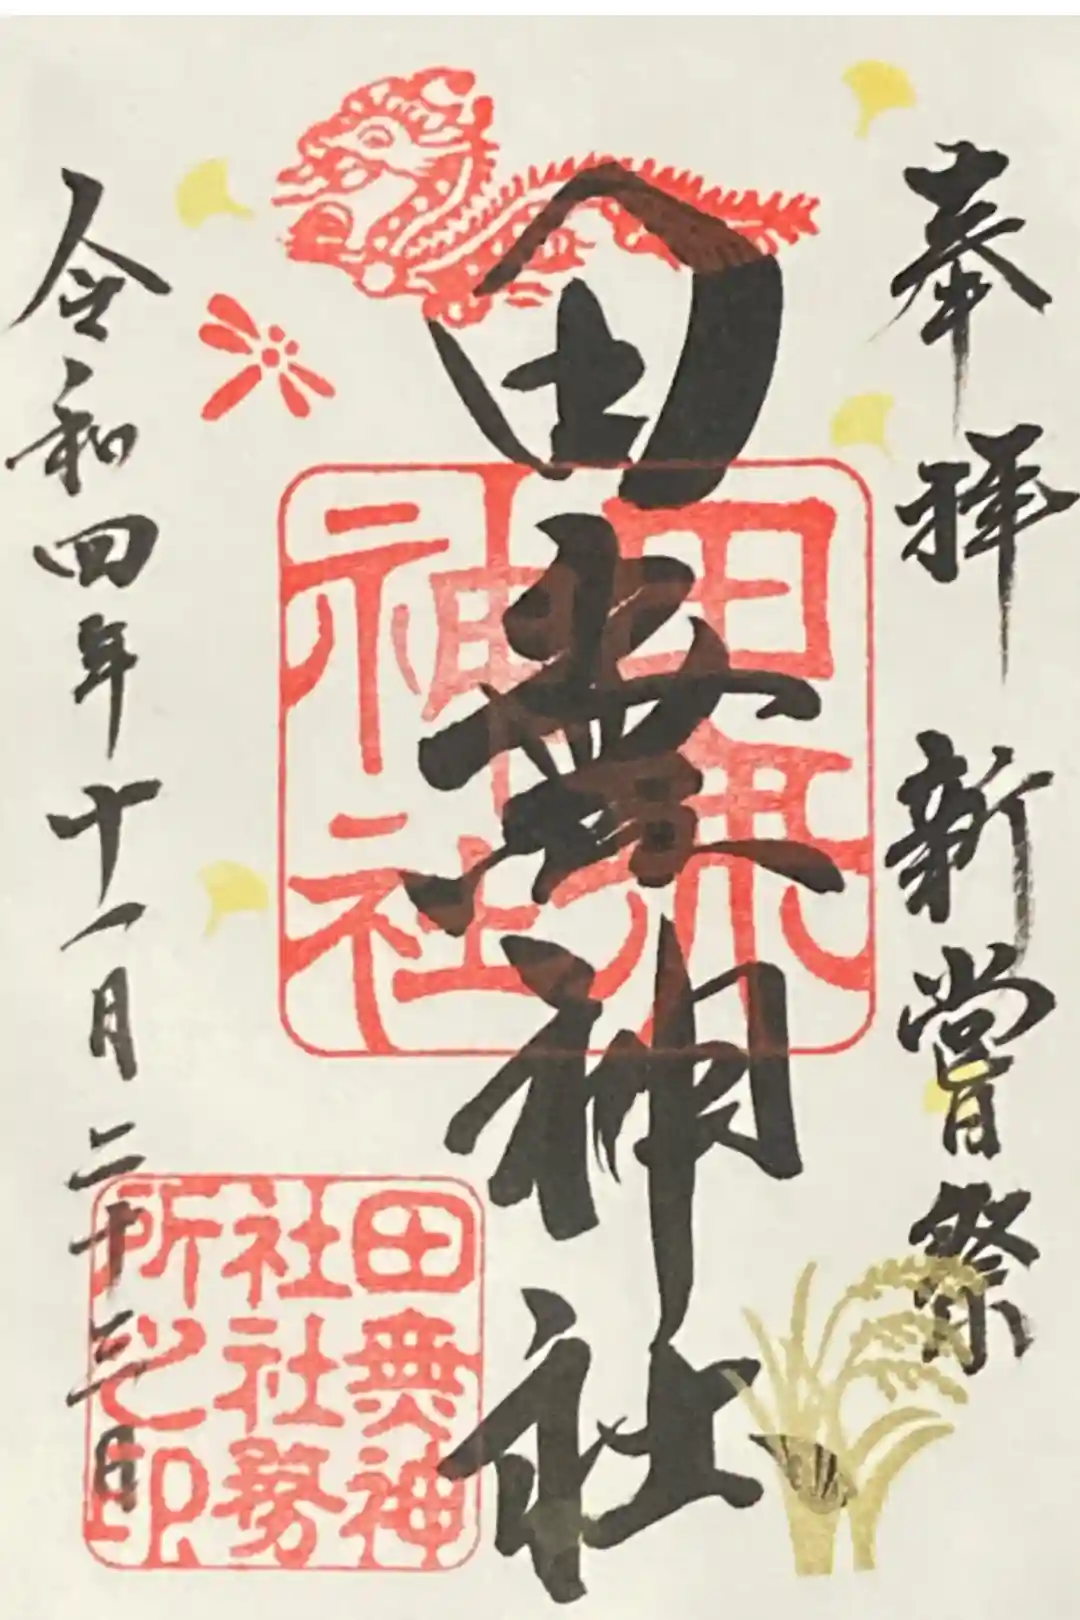 奉拝 新嘗祭
田無神社
田無神社
令和四年十一月二十三日
田無神
社社務
所之印